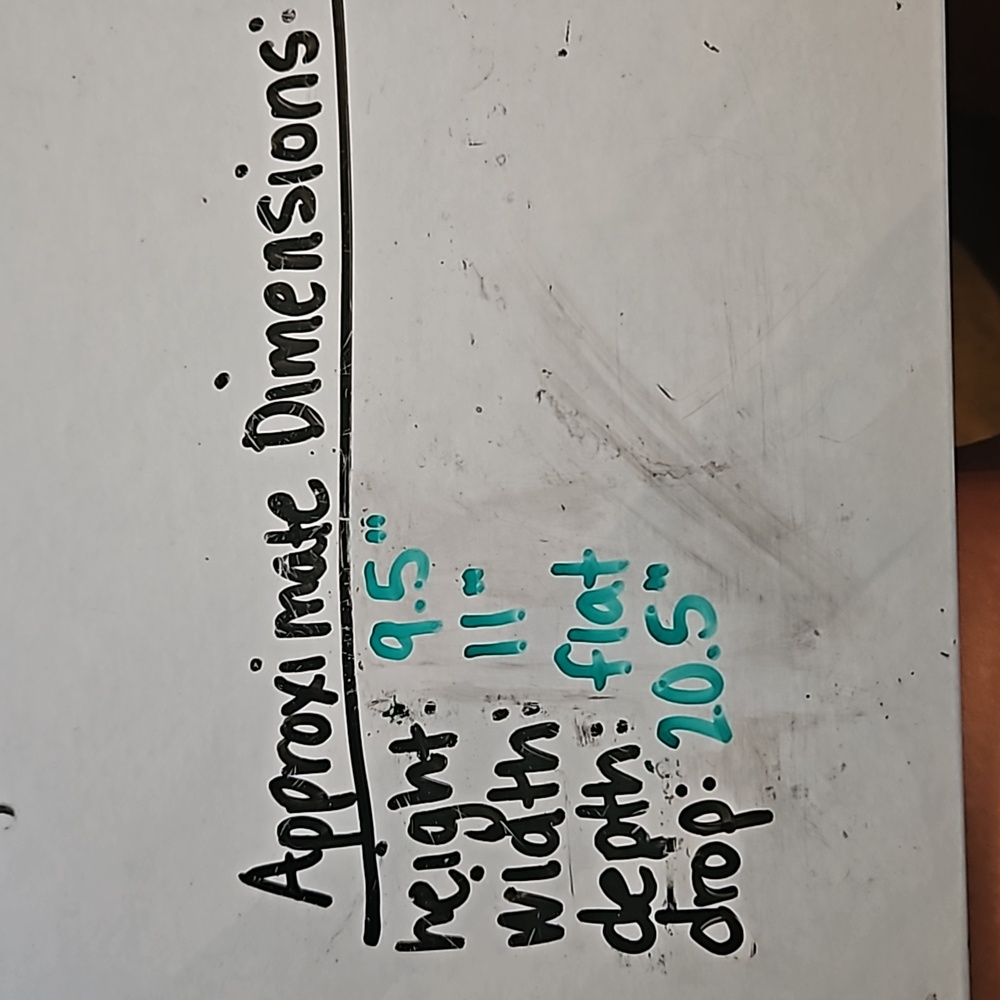 Approximate Dimensions:
height: 9.5"
width: 11"
depth: flat
drop: 20.5"